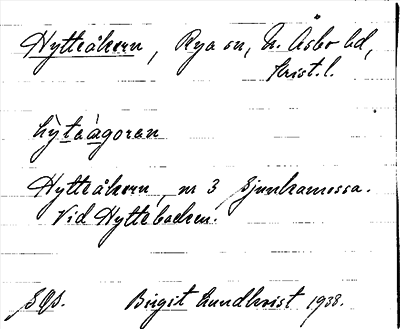 Hytteåkern, Rya sn, N. Åsbo hd,
Krist. l.
hỳteàgoren
Hytteåkern, nr 3 Sjunkamossa.
Vid Hyttebacken.
Birgit Lundkvist 1938.